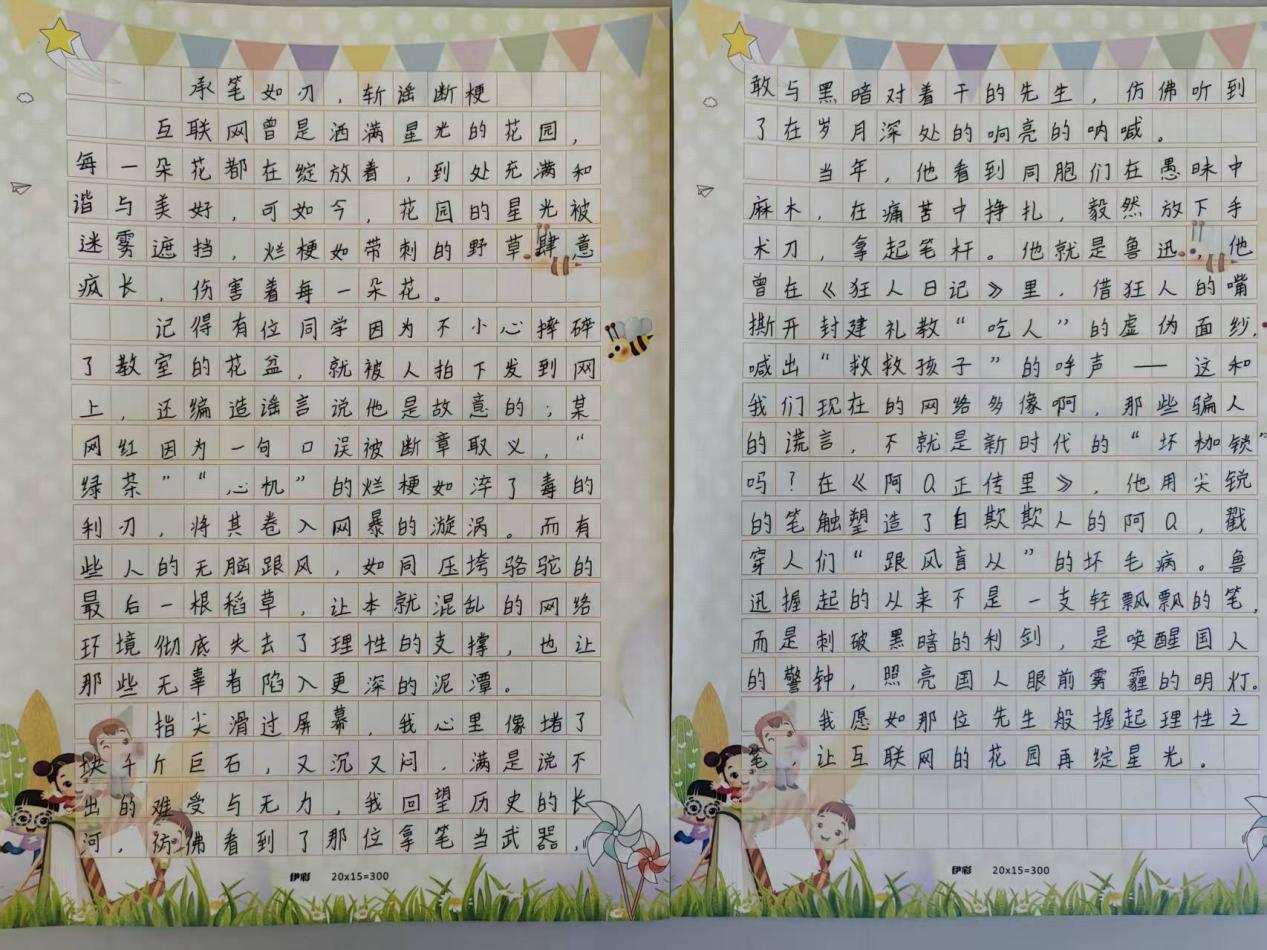 承笔如刃，斩谣断梗
互联网曾是洒满星光的花园，
每一朵花都在绽放着，到处充满和
谐与美好，可如今，花园的星光被
迷雾遮挡，烂梗如带刺的野草肆意
疯长，伤害着每一朵花。
记得有位同学因为不小心摔碎
了教室的花盆，就被人拍下发到网
上，还编造谣言说他是故意的；某
网红因为一句口误被断章取义，“
绿茶”“心机”的烂梗如淬了毒的
利刃，将其卷入网暴的漩涡。而有
些人的无脑跟风，如同压垮骆驼的
最后一根稻草，让本就混乱的网络
环境彻底失去了理性的支撑，也让
那些无辜者陷入更深的泥潭。
指尖滑过屏幕，我心里像堵了
块千斤巨石，又沉又闷 满是说不
出的难受与无力，我回望历史的长
河，彷佛看到了那位拿笔当武器，
敢与黑暗对着干的先生，仿佛听到
了在岁月深处的响亮的呐喊。
当年，他看到同胞们在愚昧中
麻木，在痛苦中挣扎，毅然放下手
术刀，拿起笔杆。他就是鲁迅，他
曾在《狂人日记》里，借狂人的嘴
撕开封建礼教“吃人”的虚伪面纱，
喊出“救救孩子”的呼声——这和
我们现在的网络多像啊，那些骗人
的谎言，不就是新时代的“坏枷锁”
吗？在《阿Q正传里》，他用尖锐
的笔触塑造了自欺欺人的阿Q，戳
穿人们“跟风盲从”的坏毛病。鲁
迅握起的从来不是一支轻飘飘的笔，
而是刺破黑暗的利剑，是唤醒国人
的警钟，照亮国人眼前雾霾的明灯。
我愿如那位先生般握起理性之
笔，让互联网的花园再绽星光。
伊彩 20x15=300
伊彩 20x15=300